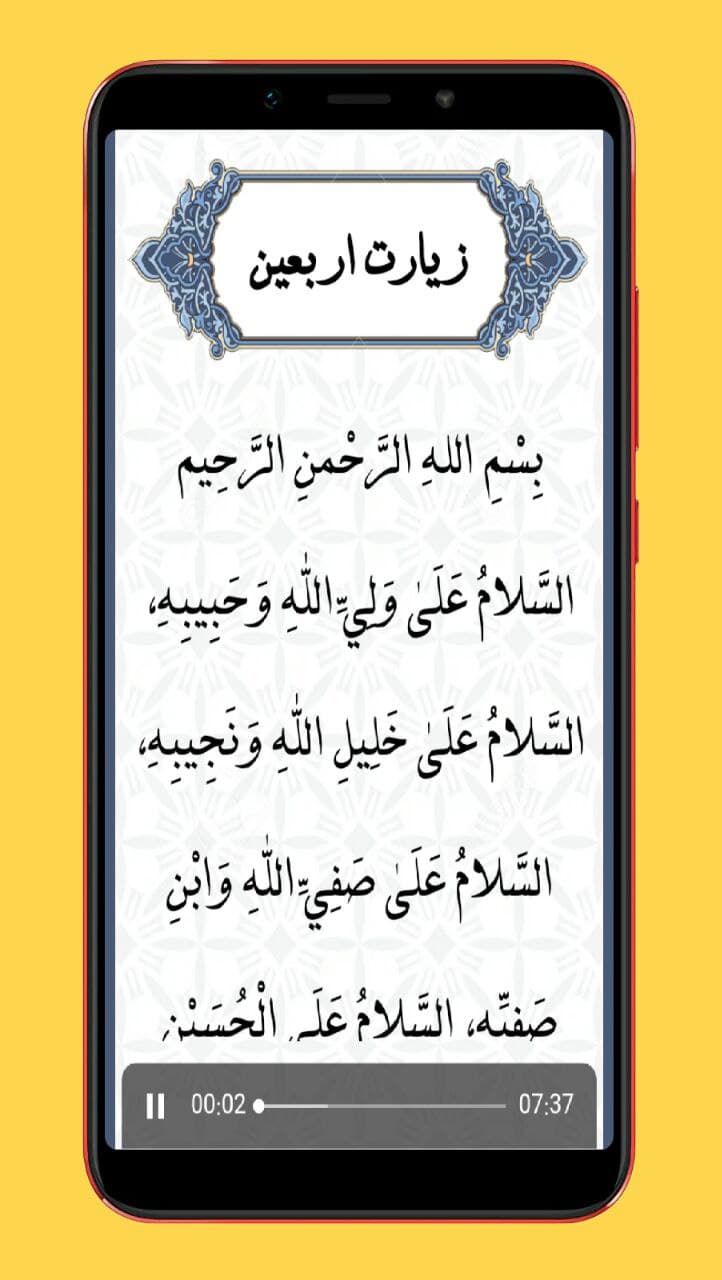 زیارت اربعین
بِسْمِ اللهِ الرَّحْمنِ الرَّحِيم
السَّلامُ عَلَىٰ وَلِيِّ اللّٰهِ وَحَبِيبِهِ،
السَّلامُ عَلَىٰ خَلِيلِ اللّٰهِ وَنَجِيبِهِ،
السَّلامُ عَلَىٰ صَفِيِّ اللّٰهِ وَابْنِ
صَفِيِّهِ، السَّلامُ عَلَى الْحُسَيْنِ
00:02 07:37